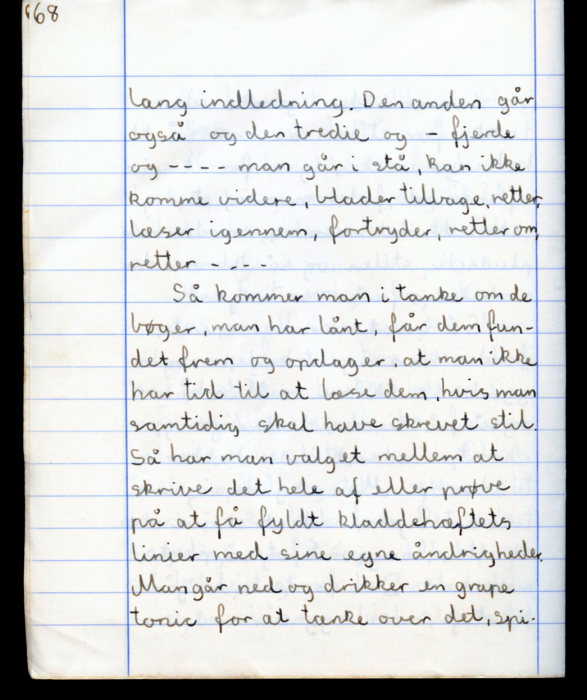 '68
lang indledning. Den anden går
også og den tredie og - fjerde
og ---- man går i stå, kan ikke
komme videre, blader tilbage, retter,
læser igennem, fortryder, retter om,
retter ----
Så kommer man i tanke om de
bøger, man har lånt, får dem fun-
det frem og opdager, at man ikke
har tid til at læse dem, hvis man
samtidig skal have skrevet stil.
Så har man valget mellem at
skrive det hele af eller prøve
på at få fyldt kladdehæftets
linier med sine egne åndrigheder.
Man går ned og drikker en grape
tonic for at tænke over det, spi-